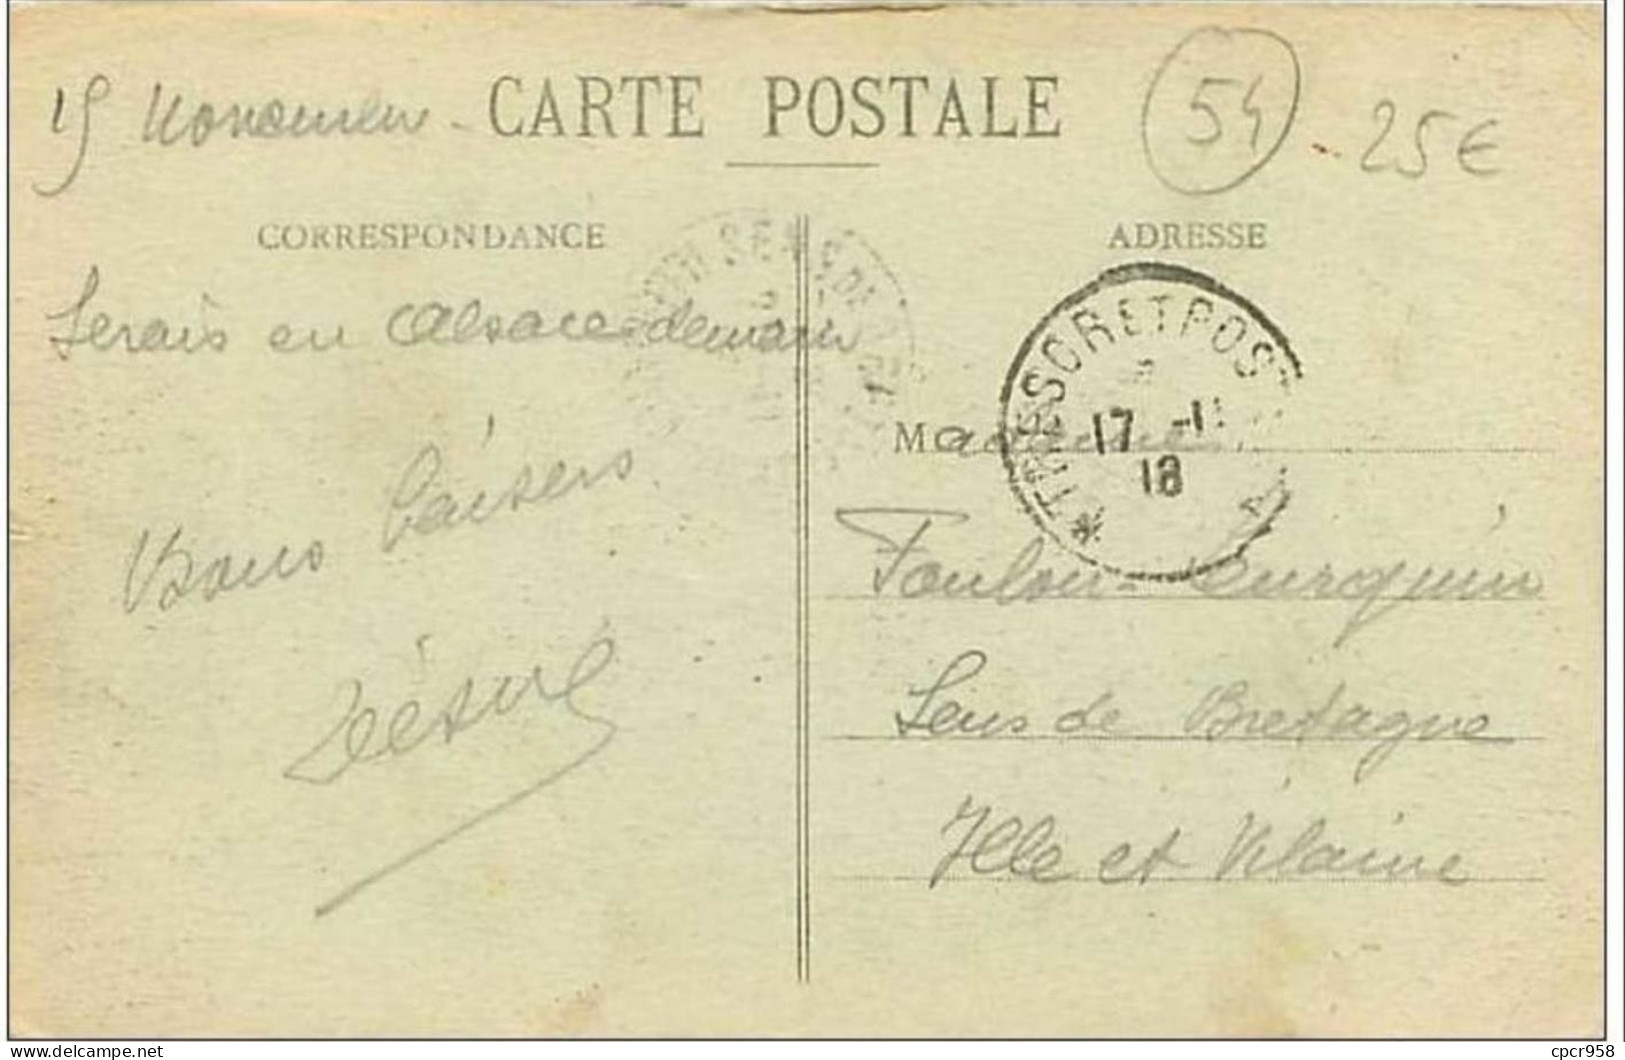 15 Novembre - CARTE POSTALE
54 - 25€
CORRESPONDANCE
Serais en Alsace demain
Bons baisers
ADRESSE
TRESOR ET POSTES
17 -11
18
Madame
Toulon-
Sens de Bretagne
Ille et Vilaine
cpcr958